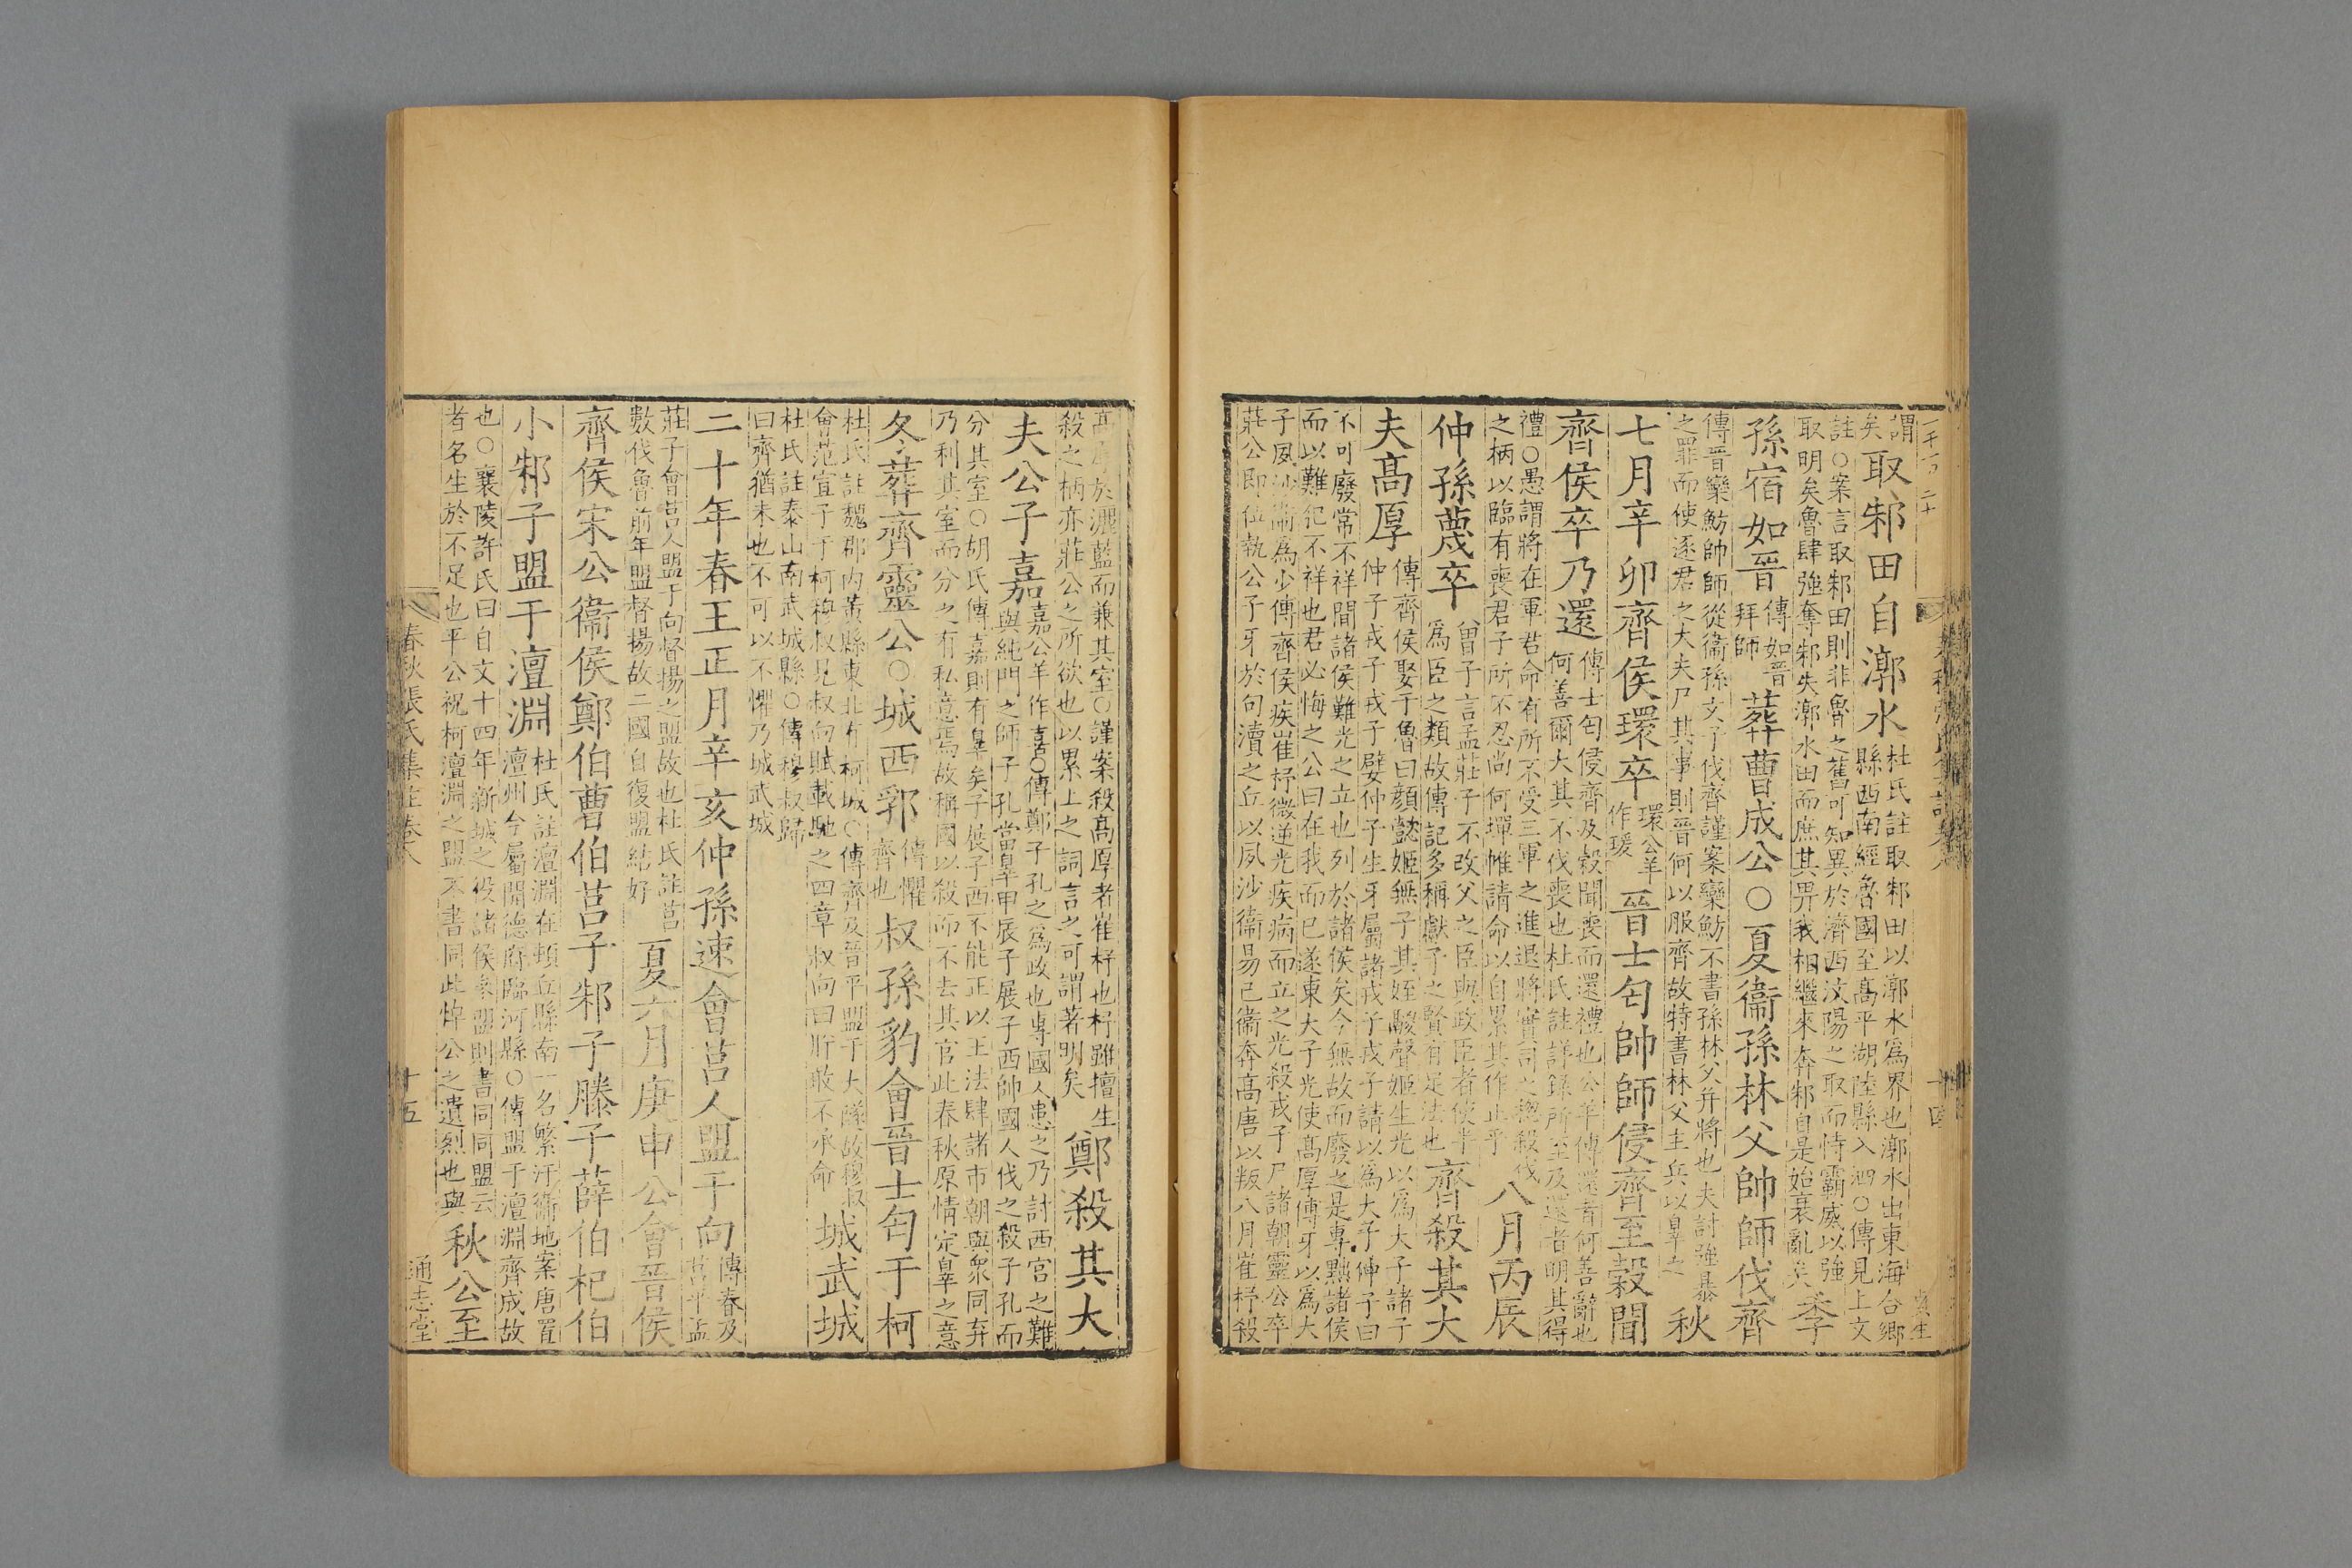 謂
矣
取邾田自漷水
杜氏註取邾田以漷水爲界也漷水出東海合鄉
縣西南經魯國至高平湖陸縣入泗○傳見上文
註○案言取邾田則非魯之舊可知異於濟西汶陽之取而恃霸威以強
取明矣魯肆強奪邾失漷水田而庶其畀我相繼來奔邾自是始衰亂矣
季
孫宿如晉
傳如晉
拜師
葬曹成公○夏衞孫林父帥師伐齊
傳晉欒魴帥師從衞孫文子伐齊謹案欒魴不書孫林父并將也夫討強暴
之罪而使逐君之大夫尸其事則晉何以服齊故特書林父主兵以辠之
秋
七月辛卯齊侯環卒
環公羊
作瑗
晉士匄帥師侵齊至穀聞
齊侯卒乃還
傳士匄侵齊及穀聞喪而還禮也公羊傳還者何善辭也
何善爾大其不伐喪也杜氏註詳錄所至及還者明其得
禮○愚謂將在軍君命有所不受三軍之進退將實司之摠殺伐
之柄以臨有喪君子所不忍尚何墠帷請命以自累其作止乎
八月丙辰
仲孫蔑卒
曾子言孟莊子不改父之臣與政臣者使半
爲臣之類故傳記多稱獻子之賢有足法也
齊殺其大
夫高厚
傳齊侯娶于魯曰顏懿姬無子其姪鬷聲姬生光以爲大子諸子
仲子戎子戎子嬖仲子生牙屬諸戎子戎子請以爲大子仲子曰
不可廢常不祥間諸侯難光之立也列於諸侯矣今無故而廢之是專黜諸侯
而以難犯不祥也君必悔之公曰在我而已遂東大子光使高厚傅牙以爲大
子夙沙衞爲少傅齊侯疾崔杼微逆光疾病而立之光殺戎子尸諸朝靈公卒
莊公即位執公子牙於句瀆之丘以夙沙衞易己衞奔高唐以叛八月崔杼殺
高厚於灑藍而兼其室○謹案殺高厚者崔杼也杼雖擅生
殺之柄亦莊公之所欲也以累上之詞言之可謂著明矣
鄭殺其大
夫公子嘉
嘉公羊作喜○傳鄭子孔之爲政也專國人患之乃討西宮之難
與純門之師子孔當辠甲辰子展子西帥國人伐之殺子孔而
分其室○胡氏傳嘉則有辠矣子展子西不能正以王法肆諸市朝與衆同弃
乃利其室而分之有私意焉故稱國以殺而不去其官此春秋原情定辠之意
冬葬齊靈公○城西郛
傳懼
齊也
叔孫豹會晉士匄于柯
杜氏註魏郡內黃縣東北有柯城○傳齊及晉平盟于大隧故穆叔
會范宣子于柯穆叔見叔向賦載馳之四章叔向曰肸敢不承命
城武城
杜氏註泰山南武城縣○傳穆叔歸
曰齊猶未也不可以不懼乃城武城
二十年春王正月辛亥仲孫速會莒人盟于向
傳春及
莒平孟
莊子會莒人盟于向督揚之盟故也杜氏註莒
數伐魯前年盟督揚故二國自復盟結好
夏六月庚申公會晉侯
齊侯宋公衞侯鄭伯曹伯莒子邾子滕子薛伯杞伯
小邾子盟于澶淵
杜氏註澶淵在頓丘縣南一名繁汙衞地案唐置
澶州今屬開德府臨河縣○傳盟于澶淵齊成故
也○襄陵許氏曰自文十四年新城之役諸侯參盟則書同同盟云
者名生於不足也平公祝柯澶淵之盟不書同此悼公之遺烈也與
秋公至
春秋張氏集註卷八
十五
通志堂